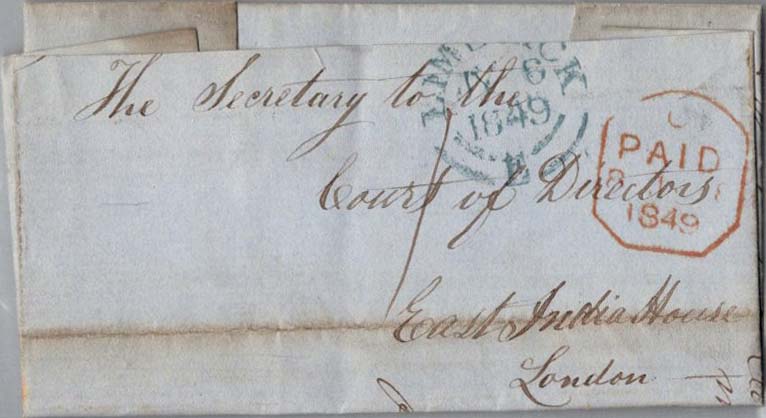 The Secretary to the
Court of Directors
East India House
London
LIMERICK
6
1849
E
PAID
1849